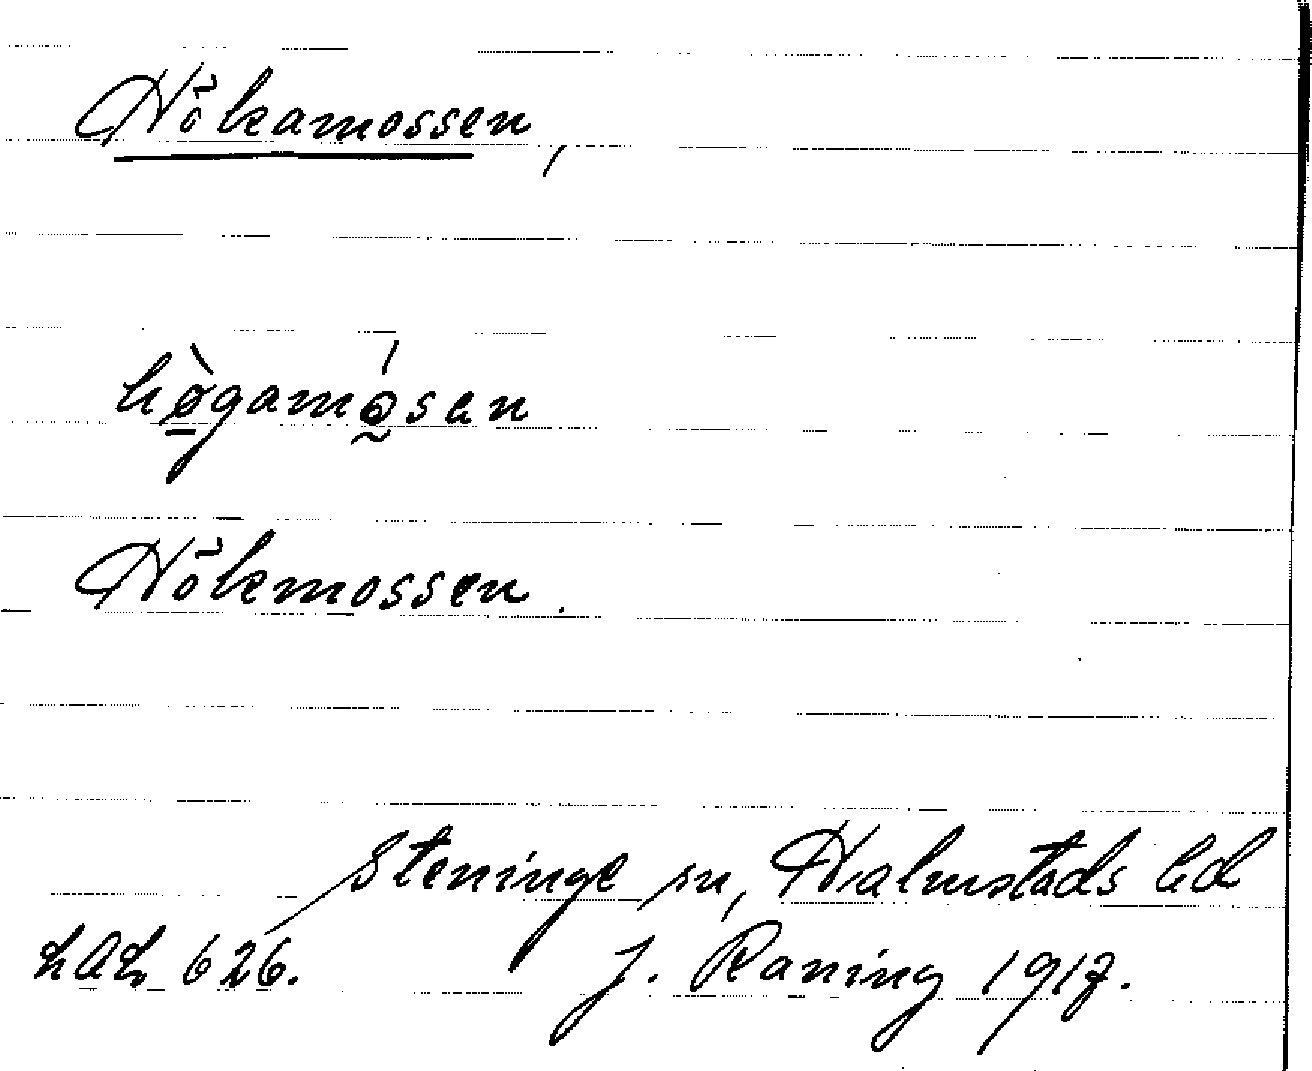 Hökamossen,
høgamósen
Hökmossen.
Steninge sn, Halmstads hd
LAL 626. J. Raning 1917.